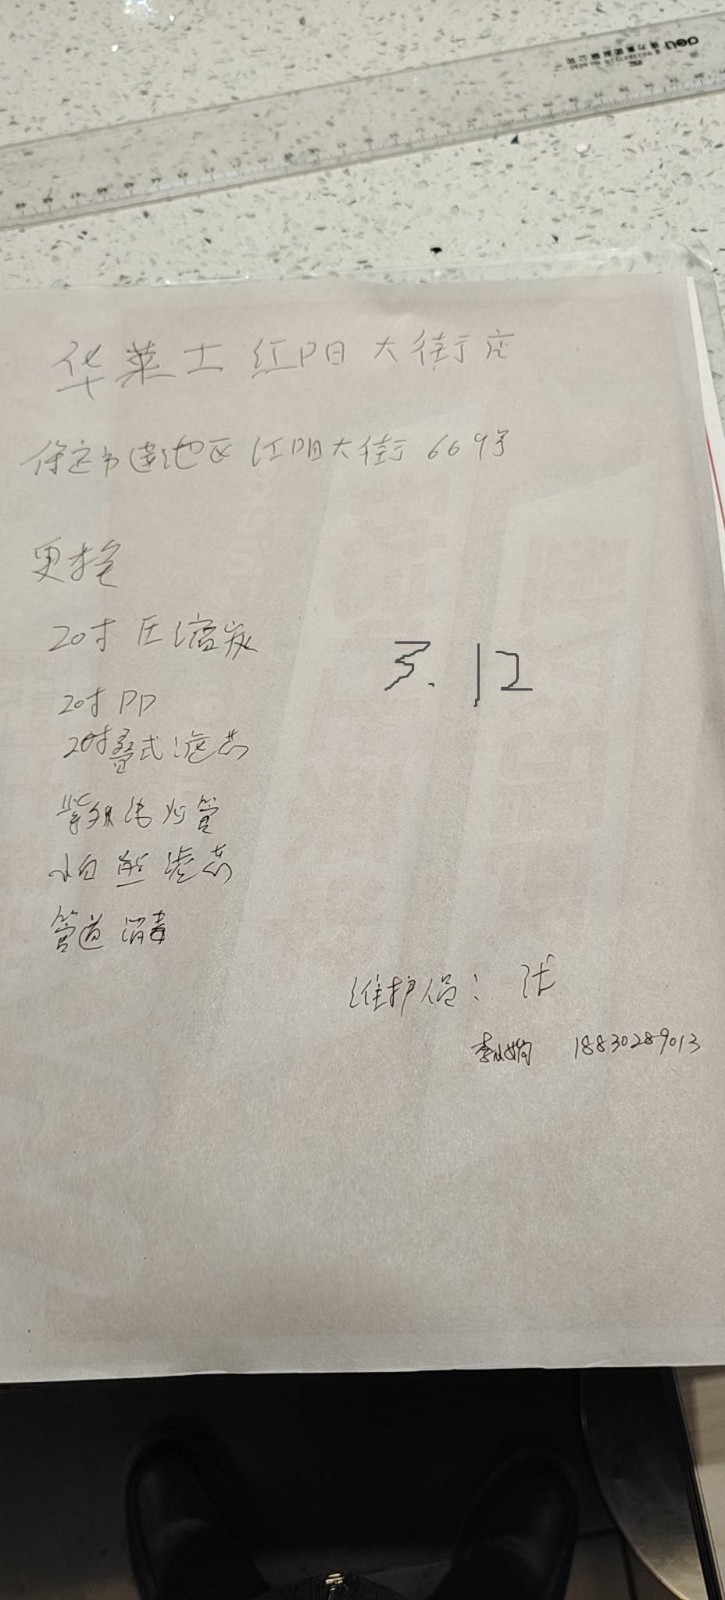 deli
华莱士 红阳 大街店
保定市莲池区 红阳大街 669号
更换
20寸 压缩炭
3.12
20寸 PP
20寸叠式滤芯
紫外线灯管
小白熊滤芯
管道 消毒
维护员：张
18830289013